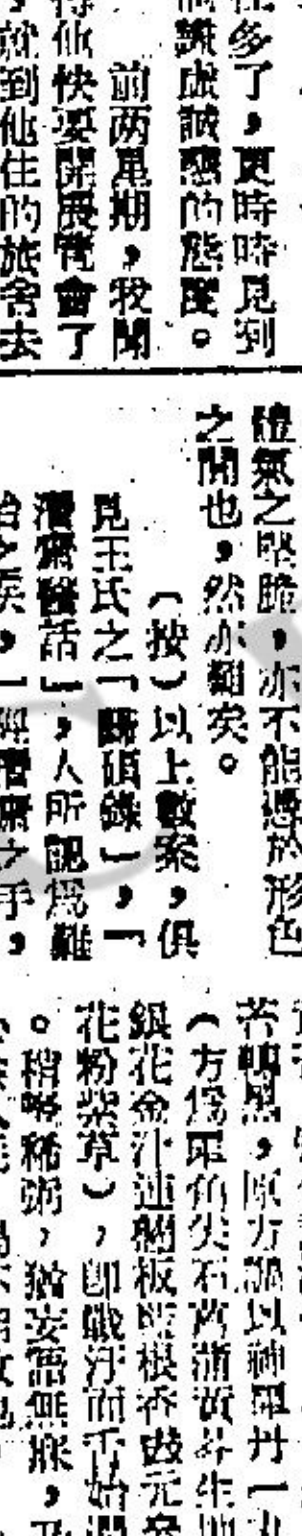 多了，更時時見到
謙虛誠懇的態度。
前两星期，我聞
他快要開展覽會了
就到他住的旅舍去
體氣之堅脆，亦不能憑於形色
之間也，然亦難矣。
（按）以上數案，俱
見王氏之「歸硯錄」，「
潛齋醫話」，人所認爲難
治之疾，一經潛齋之手，
苦轉黑，原方調以神犀丹一
（方爲犀角尖石菖蒲黃芩生地
銀花金汁連翹板藍根香豉元參
花粉紫草），卽戰汗而舌始潤
。稍啜稀粥，猶妄語無寐，